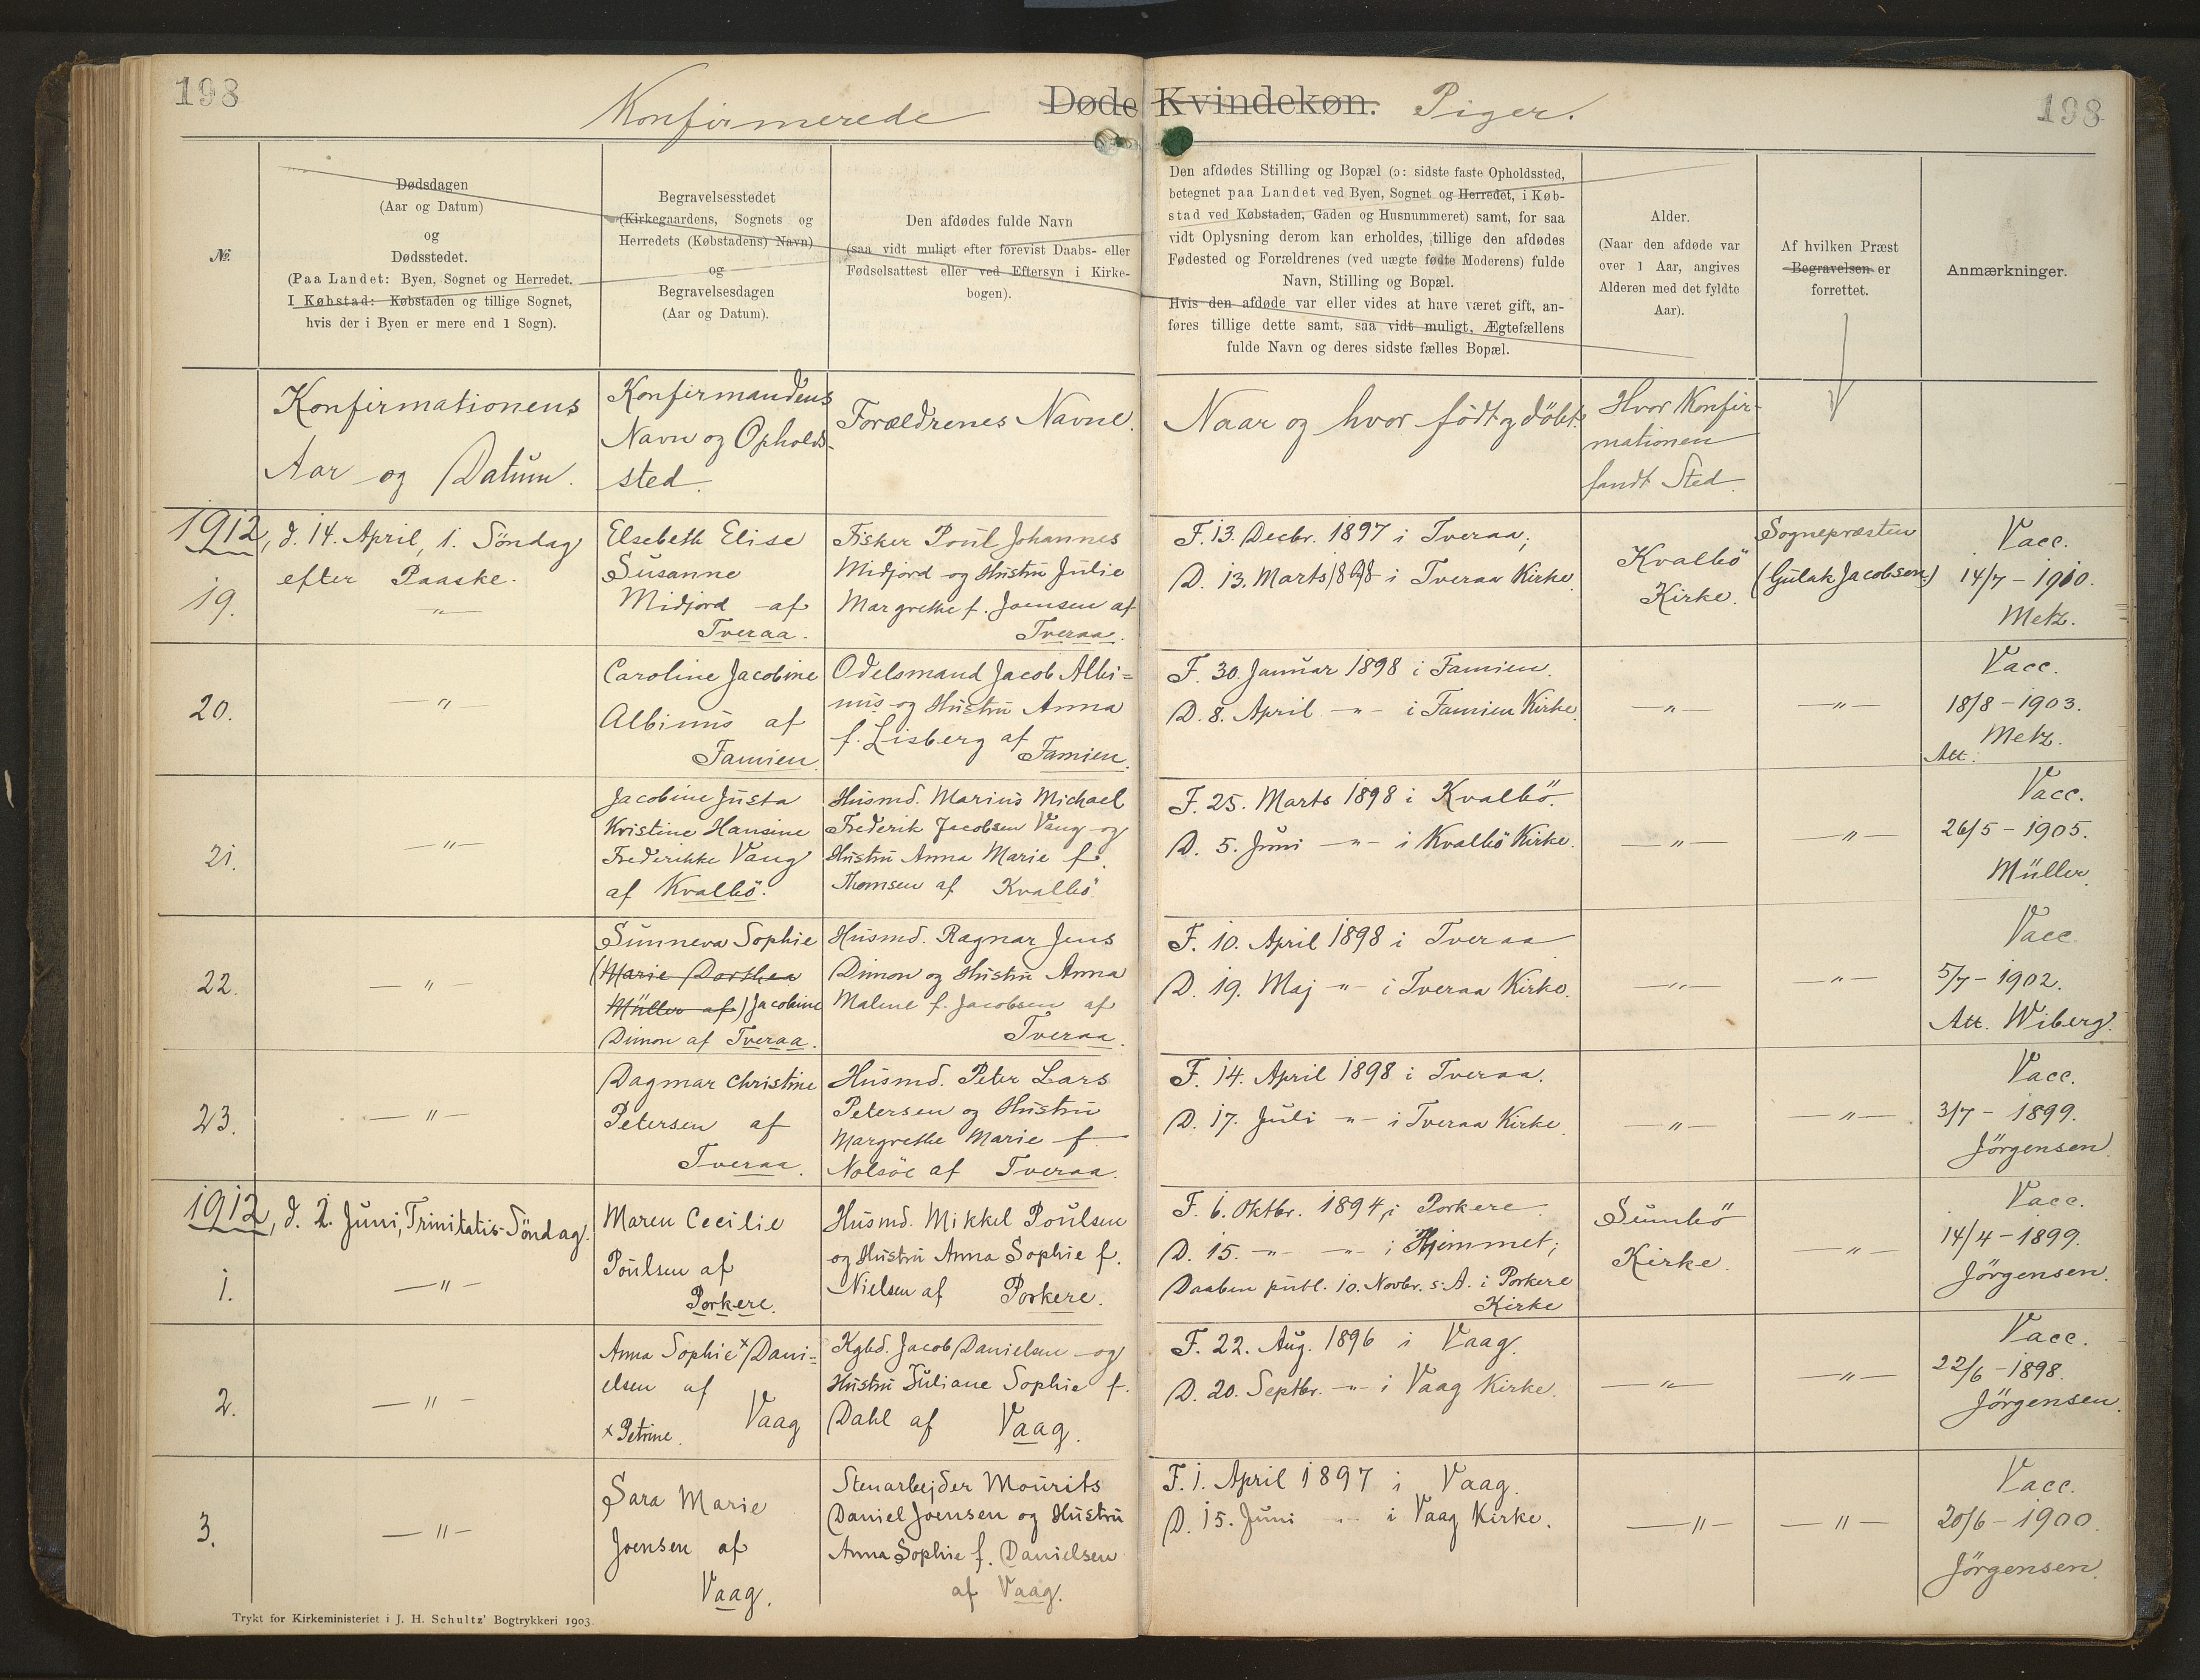 198
Konfirmerede
Døde Kvindekøn.
Piger.
198
№
Dødsdagen
(Aar og Datum)
og
Dødsstedet.
(Paa Landet: Byen, Sognet og Herredet.
I Købstad: Købstaden og tillige Sognet,
hvis der i Byen er mere end 1 Sogn).
Begravelsesstedet
(Kirkegaardens, Sognets og
Herredets (Købstadens) Navn)
og
Begravelsesdagen
(Aar og Datum).
Den afdødes fulde Navn
(saa vidt muligt efter forevist Daabs- eller
Fødselsattest eller ved Eftersyn i Kirke-
bogen).
Den afdødes Stilling og Bopæl (ɔ: sidste faste Opholdssted,
betegnet paa Landet ved Byen, Sognet og Herredet, i Køb-
stad ved Købstaden, Gaden og Husnummeret) samt, for saa
vidt Oplysning derom kan erholdes, tillige den afdødes
Fødested og Forældrenes (ved uægte fødte Moderens) fulde
Navn, Stilling og Bopæl.
Hvis den afdøde var eller vides at have været gift, an-
føres tillige dette samt, saa vidt muligt, Ægtefællens
fulde Navn og deres sidste fælles Bopæl.
Alder.
(Naar den afdøde var
over 1 Aar, angives
Alderen med det fyldte
Aar).
Af hvilken Præst
Begravelsen er
forrettet.
Anmærkninger.
Konfirmationens
Aar og Datum.
Konfirmandens
Navn og Opholds-
sted.
Forældrenes Navne.
Naar og hvor født og döbt.
Hvor Konfir-
mationen
fandt Sted
1912, d. 14. April, 1. Söndag
efter Paaske.
19.
-"-
Elsebeth Elise
Susanne
Midjord af
Tveraa.
Fisker Poul Johannes
Midjord og Hustru Julie
Margrethe f. Joensen af
Tveraa.
F. 13. Decbr. 1897 i Tveraa;
D. 13. Marts 1898 i Tveraa Kirke.
Kvalbö
Kirke.
Sognepræsten
(Gulak Jacobsen)
Vacc.
14/7 - 1910.
Metz.
20.
-"-
Caroline Jacobine
Albinus af
Famien.
Odelsmand Jacob Albi=
nus og Hustru Anna
f. Lisberg af
Famien.
F. 30. Januar 1898 i Famien.
D. 8. April -"- i Famien Kirke.
-"-
-"-
Vacc.
18/8 - 1903.
Metz.
Att.
21.
-"-
Jacobine Justa
Kristine Hansine
Frederikke Vang
af Kvalbö.
Husmd. Marius Michael
Frederik Jacobsen Vang og
Hustru Anna Marie f.
Thomsen af Kvalbö.
F. 25. Marts 1898 i Kvalbö.
D. 5. Juni -"- i Kvalbö Kirke.
-"-
-"-
Vacc.
26/5 - 1905.
Müller.
22.
-"-
Sunneva Sophie
(Marie Dorthea
Müller af) Jacobine
Dimon af Tveraa.
Husmd. Ragnar Jens
Dimon og Hustru Anna
Malene f. Jacobsen af
Tveraa.
F. 10. April 1898 i Tveraa
D. 19. Maj -"- i Tveraa Kirke.
-"-
-"-
Vacc.
5/7 - 1902.
Att. Wiberg.
23.
-"-
Dagmar Christine
Petersen af
Tveraa.
Husmd. Peter Lars
Petersen og Hustru
Margrethe Marie f.
Nolsöe af Tveraa.
F. 14. April 1898 i Tveraa.
D. 17. Juli -"- i Tveraa Kirke.
-"-
-"-
Vacc.
3/7 - 1899.
Jörgensen.
1912, d. 2. Juni, Trinitatis-Söndag.
1.
-"-
Maren Cecilie
Poulsen af
Porkere.
Husmd. Mikkel Poulsen
og Hustru Anna Sophie f.
Nielsen af Porkere.
F. 6. Oktbr. 1894, i Porkere.
D. 15. -"- -"- i Hjemmet;
Daaben publ. 10. Novbr. s. A. i Porkere
Kirke
Sumbö
Kirke.
-"-
Vacc.
14/4 - 1899.
Jörgensen.
2.
-"-
Anna Sophie x Dani=
elsen af
x Petrine. Vaag
Kgbd. Jacob Danielsen og
Hustru Juliane Sophie f.
Dahl af Vaag.
F. 22. Aug. 1896 i Vaag.
D. 20. Septbr. -"- i Vaag Kirke.
-"-
-"-
Vacc.
22/6 - 1898.
Jörgensen.
3.
-"-
Sara Marie
Joensen af
Vaag.
Stenarbejder Mourits
Daniel Joensen og Hustru
Anna Sophie f. Danielsen
af Vaag.
F. 1. April 1897 i Vaag.
D. 15. Juni -"- i Vaag Kirke.
-"-
-"-
Vacc.
20/6 - 1900.
Jörgensen.
Trykt for Kirkeministeriet i J. H. Schultz' Bogtrykkeri 1903.